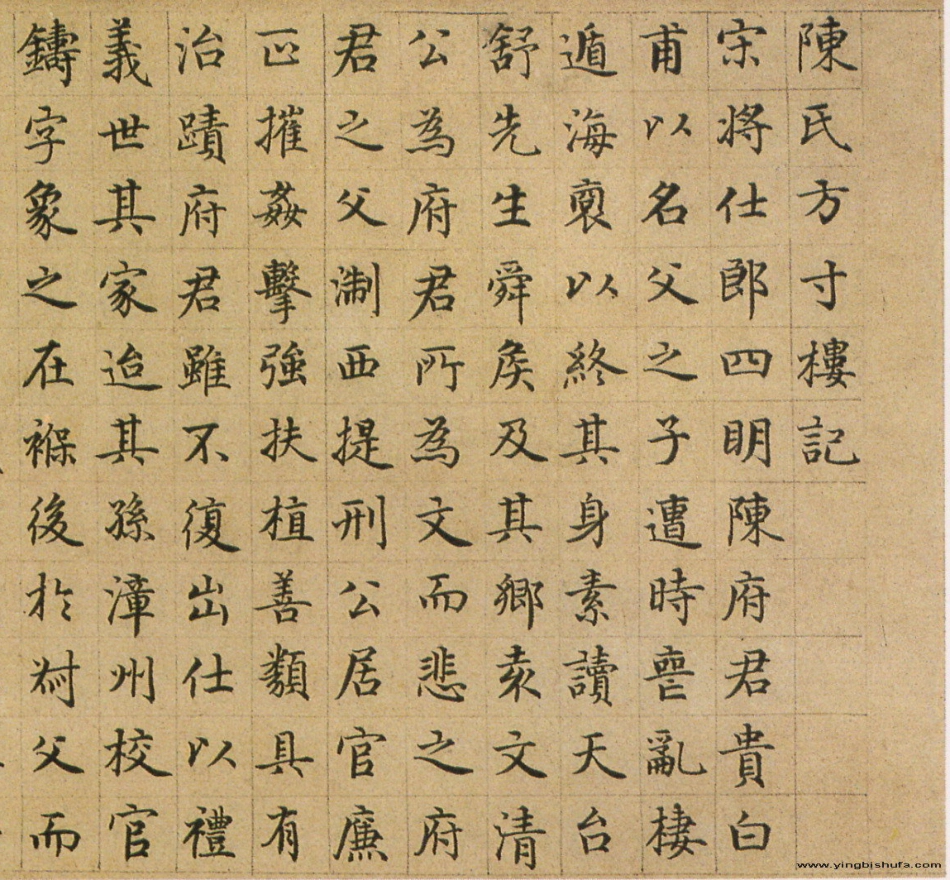 陳氏方寸樓記
宋將仕郎四明陳府君貴白
甫以名父之子遭時喪亂棲
遁海裔以終其身素讀天台
舒先生舜矦及其鄉袁文清
公為府君所為文而悲之府
君之父淛西提刑公居官廉
正摧姦擊強扶植善類具有
治蹟府君雖不復出仕以禮
義世其家迨其孫漳州校官
鑄字象之在褓後於
父而
www.yingbishufa.com